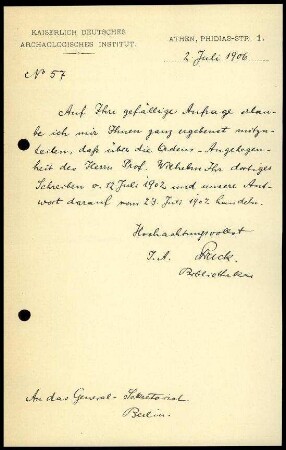 KAISERLICH DEUTSCHES
ARCHAEOLOGISCHES INSTITUT.
ATHEN, PHIDIAS-STR. 1.
2 Juli 1906
No 57
Auf Ihre gefällige Anfrage erlau-
be ich mir Ihnen ganz ergebenst mitzu-
teilen, daß über die Ordens-Angelegen-
heit des Herrn Prof. Wilhelm Ihr dortiges
Schreiben v. 12 Juli 1902 und unsere Ant-
wort darauf vom 23 Juli 1902 handeln.
Hochachtungsvollst
I. A.
Bibliothekar
An das General-Sekretariat
Berlin.